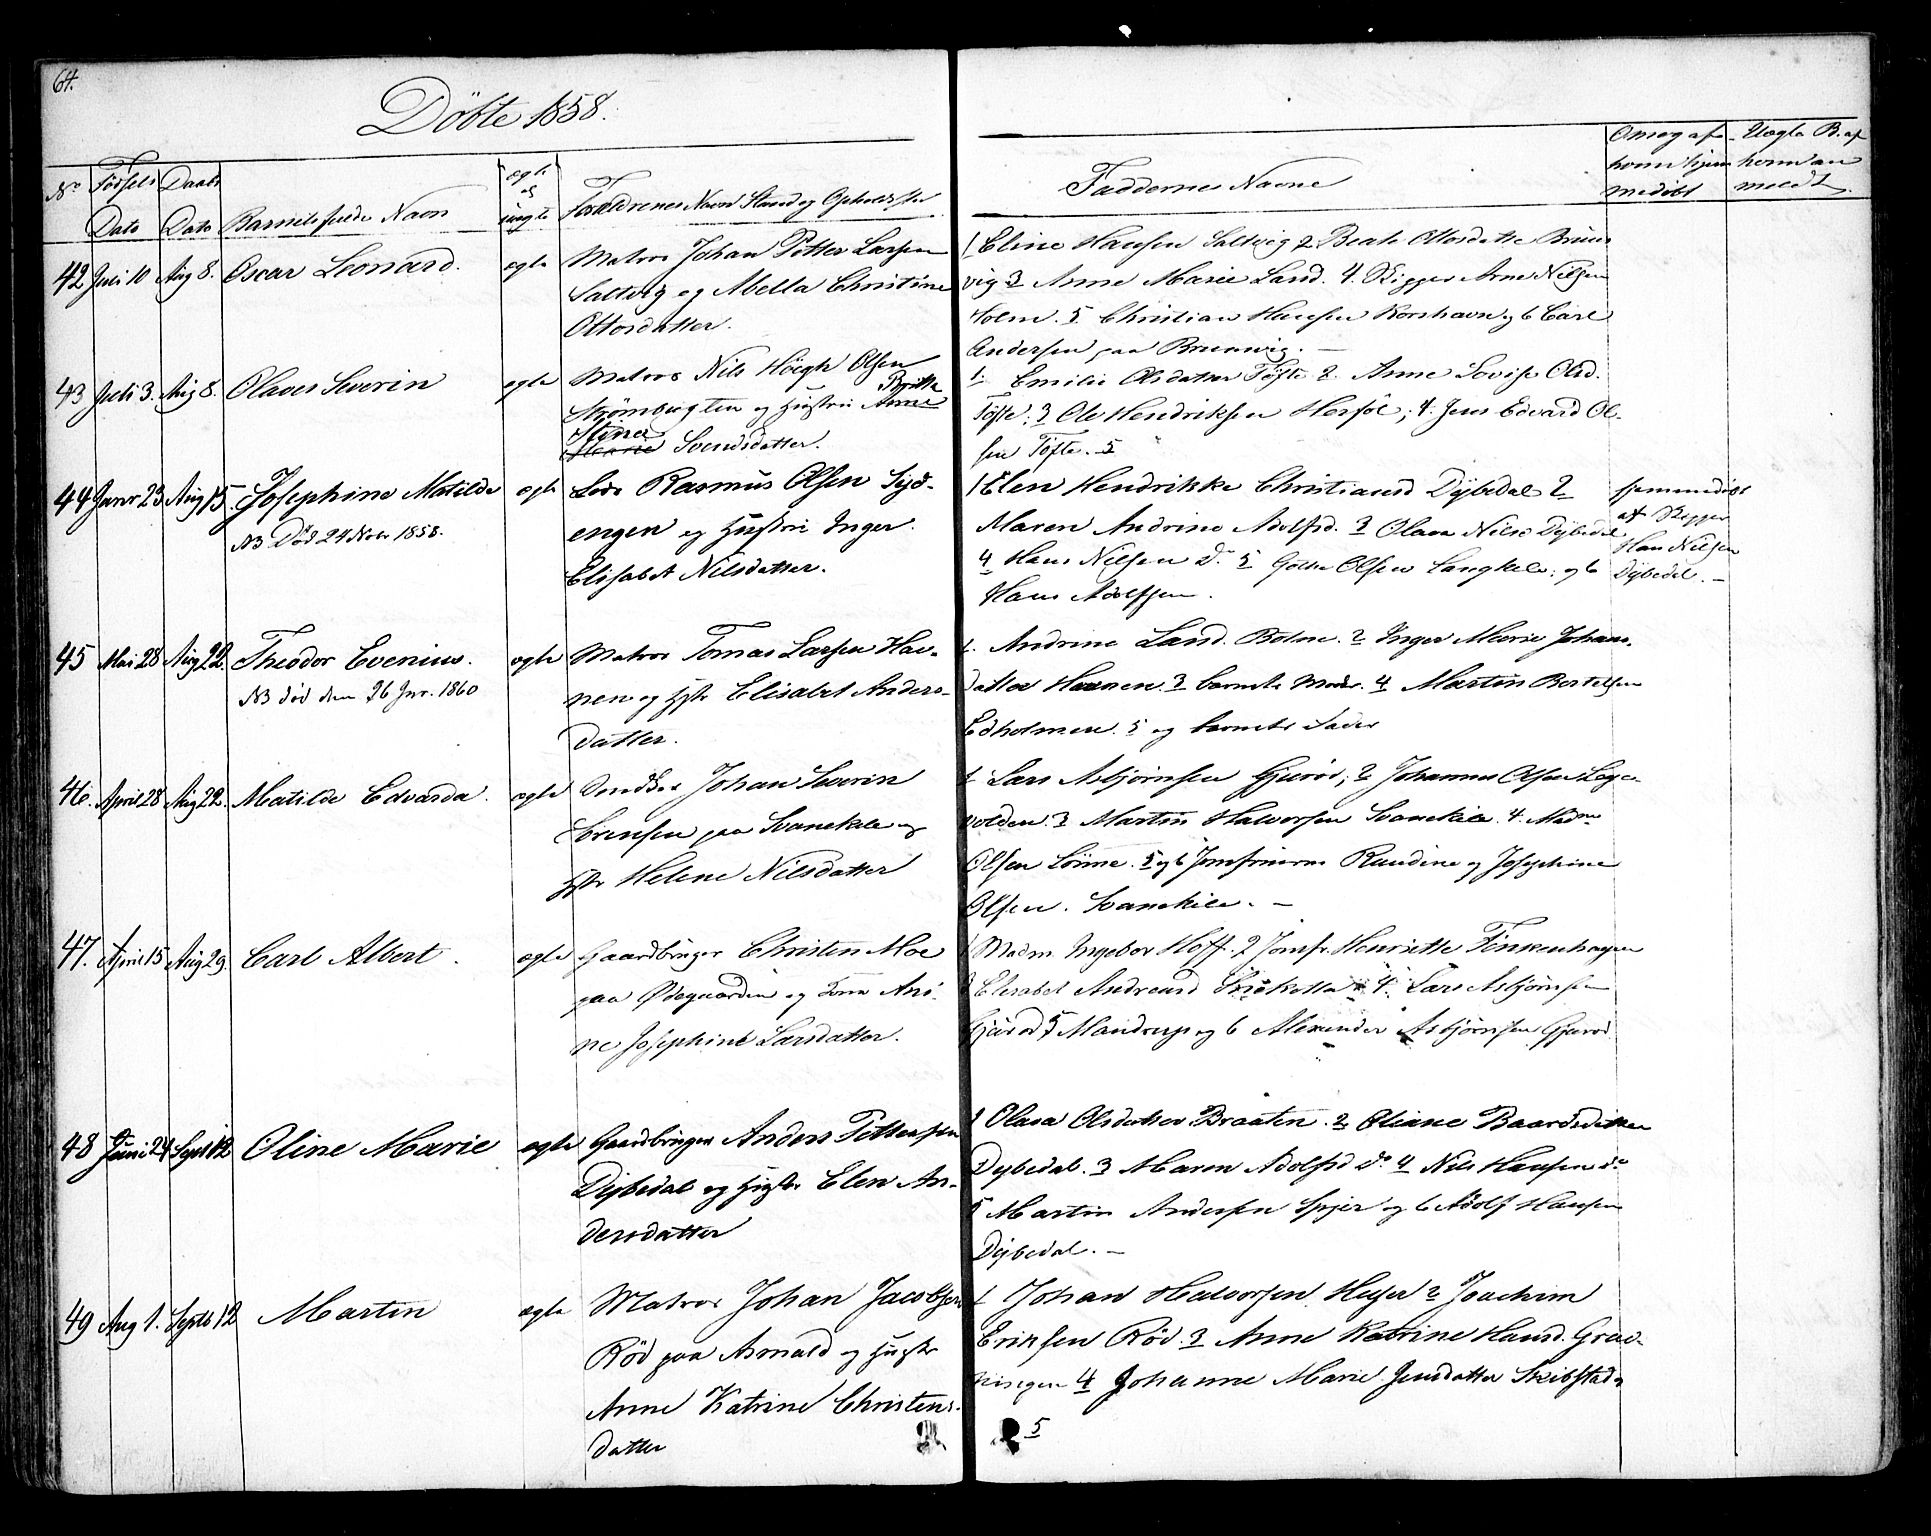 64.
Döbte 1858.
No
Födsels
Dato
Daabs
Dato
Barnets fulde Navn
ægte
og
uægte
Forældrenes Navn Stand og Opholdsste
Faddernes Navne
Om og af
hvem hjem
medöbt
Uægte B. af
hvem an
meldt.
42 Juli 10 Aug 8. Oscar Leonard. ægte
Matros Johan Petter Larsen
Saltvig og Mella Christine
Ottosdatter.
1 Eline Hansen Saltvig 2 Beate Ottosdatte Bruns
vig 3 Anne Marie Land. 4. Skipper Arne Nilsen
Holm. 5 Christian Hansen Korshavn og 6 Carl
Andersen paa Brunsvig. —
43 Juli 3. Aug 8. Olaves Severin ægte
Matros Nils Höigh Olsen
Britte
Strömbugten og Hustru Anne
Stine
Marie Svendsdatter.
1. Emilie Olsdatter Töfte 2. Anne Lovise Olsd.
Töfte; 3 Ole Hendriksen Herföl; 4. Jens Edvard Ol-
sen Töfte. 5
44 Janr 23 Aug 15. Josephine Matilde ægte
NB Död 24 Novr 1858.
Lods Rasmus Olsen Syd-
engen og Hustru Inger
Elisabet Nilsdatter.
1 Elen Hendrikke Christiansd Dybedal 2
Maren Andrine Adolfsd. 3 Olava Nilsd Dybedal
4 Hans Nilsen Do 5 Olsen Langkile; og 6
Hans Adolfsen.
hjemmedöbt
af Skipper
Hans Nilsen
Dybedal. —
45 Mai 28 Aug 22. Theodor Evenius. ægte
NB död den 26 Jnr. 1860
Matros Tomas Larsen Hav-
nen og Hstr Elisabet Anders-
datter.
1. Andrine Land. Holm. 2 Inger Marie Johans-
datter Havnen. 3 barnets Moder. 4 Martin Bertelsen
Edholmen. 5 og barnets Fader
46. April 28 Aug 22. Matilde Edvarda. ægte
Johan Severin
Sörensen paa Svanekile og
Hstr Helene Nilsdatter
1 Lars Asbjörnsen Gjuröd; 2 Johannes Olsen Löge
volden. 3 Martin Halvorsen Svanekile. 4. Madme
Olsen. 5 og 6 Jomfruerne Randine og Josephine
Olsen. Svanekile. —
47. April 15 Aug 29. Carl Albert. ægte
Gaardbruger Christen Moe
paa Ödegaarden og Kone Ani-
ne Josephine Larsdatter.
1 Madm Ingebor Hoff. 2 Jomfr. Henriette Finkenhagen
3 Elisabet Andreasd 4. Lars Asbjörnsen
Gjuröd 5 Mandrup og 6 Alexander Asbjörnsen Gjuröd
48 Juni 24 Sept 12 Oline Marie ægte
Gaardbruger Anders Pettersen
Dybedal og Hustr Elen An-
dersdatter
1 Olava Olsdatter Braaten. 2 Oliane Baardsdatter
Dybedal. 3 Maren Adolfsd Do 4 Nils Hansen do
5 Martin Andersen Spjer og 6 Adolf Hansen
Dybedal. —
49 Aug 1. Septb 12 Martin ægte
Matros Johan Jacobsen
Röd paa Asmald og Hustr
Anne Katrine Christens-
datter
1 Johan Halvorsen Huser 2 Joachim
Eriksen Röd. 3 Anne Katrine Hansd. Græd-
ningen 4 Johanne Marie Jensdatter Skibstad
5